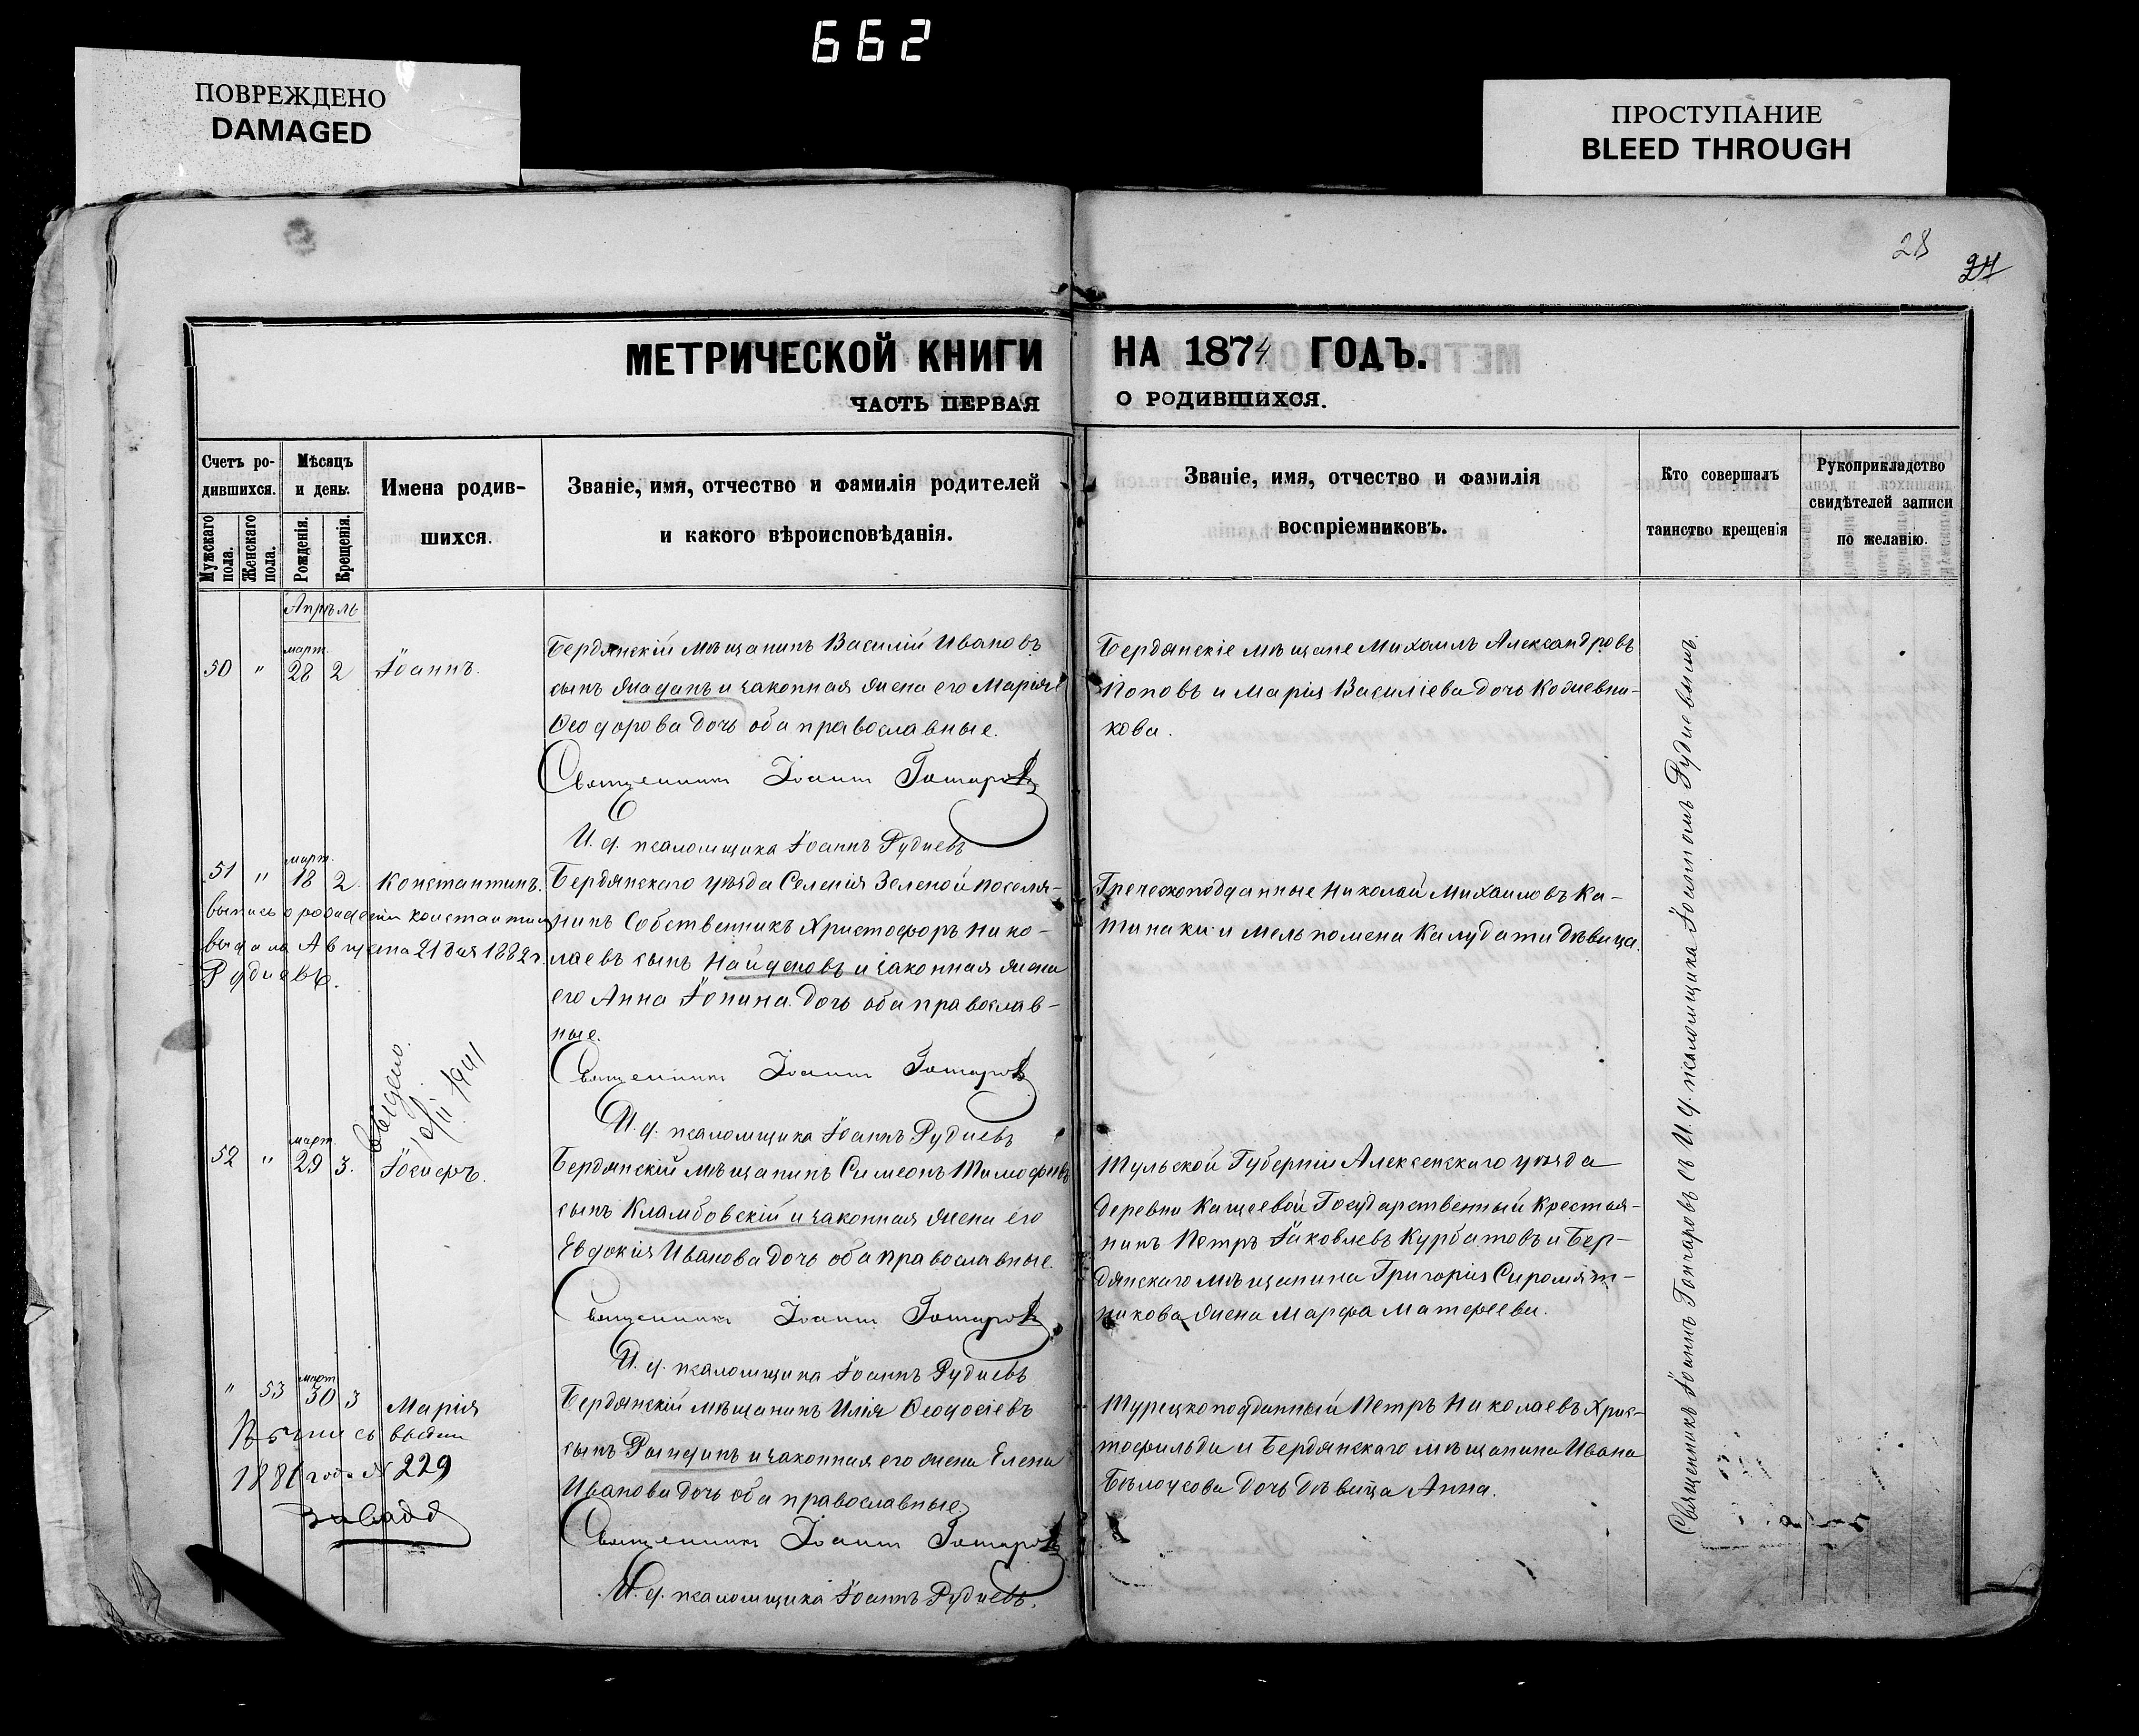 662
ПОВРЕЖДЕНО
DAMAGED
ПРОСТУПАНИЕ
BLEED THROUGH
28
24
МЕТРИЧЕСКОЙ КНИГИ НА 1874 ГОДЪ.
ЧАСТЬ ПЕРВАЯ О РОДИВШИХСЯ.
Счетъ ро-
дившихся.
Мужскаго пола.
Женскаго пола.
Мѣсяцъ
и день.
Рожденія.
Крещенія.
Имена родив-
шихся.
Званіе, имя, отчество и фамилія родителей
и какого вѣроисповѣданія.
Званіе, имя, отчество и фамилія
воспріемниковъ.
Кто совершалъ
таинство крещенія
Рукоприкладство
свидѣтелей записи
по желанію.
Апрѣль
март.
50 " 28 2 Іоаннъ.
Бердянскій мѣщанинъ Василій Ивановъ
сынъ и законная жена его Марія
Ѳеодорова дочь оба православные.
Священникъ Іоаннъ Гончаровъ
И. д. псаломщика Іоаннъ Рудневъ
Бердянскіе мѣщане Михаилъ Александровъ
Поповъ и Марія Василіева дочь Кожевни-
кова.
март.
51 " 18 2. Константинъ.
выпись о рожденіи Константина
выдана Августа 21 дня 1882 г.
Рудневъ.
Бердянскаго уѣзда Селенія Зеленой поселя-
нинъ Собственникъ Христофоръ Нико-
лаевъ сынъ Найденовъ и законная жена
его Анна Іонина дочь оба православ-
ные.
Священникъ Іоаннъ Гончаровъ
И. д. псаломщика Іоаннъ Рудневъ
Греческоподданные Николай Михаиловъ Ка-
тинаки и Мельпомена Калудати дѣвица.
выдано
1941
март.
52 " 29 3. Іосифъ.
Бердянскій мѣщанинъ Симеонъ Тимофѣевъ
сынъ Кламбовскій и законная жена его
Евдокія Иванова дочь оба православные.
Священникъ Іоаннъ Гончаровъ
И. д. псаломщика Іоаннъ Рудневъ
Тульской Губерніи Алексенскаго уѣзда
деревни Кащеевой Государственный Крестья-
нинъ Петръ Іаковлевъ Курбатовъ и Бер-
дянскаго мѣщанина Григорія Сиромят-
никова жена Марфа Матфеева.
март
" 53 30 3 Марія
выдан
1881 года № 229
Бердянскій мѣщанинъ Илія Ѳеодосіевъ
сынъ и законная его жена Елена
Иванова дочь оба православные.
Священникъ Іоаннъ Гончаровъ
И. д. псаломщика Іоаннъ Рудневъ.
Турецкоподданный Петръ Николаевъ Хрис-
тофильди и Бердянскаго мѣщанина Ивана
Бѣлоусова дочь дѣвица Анна.
Священникъ Іоаннъ Гончаровъ съ И. д. псаломщика Іоанномъ Рудневымъ.